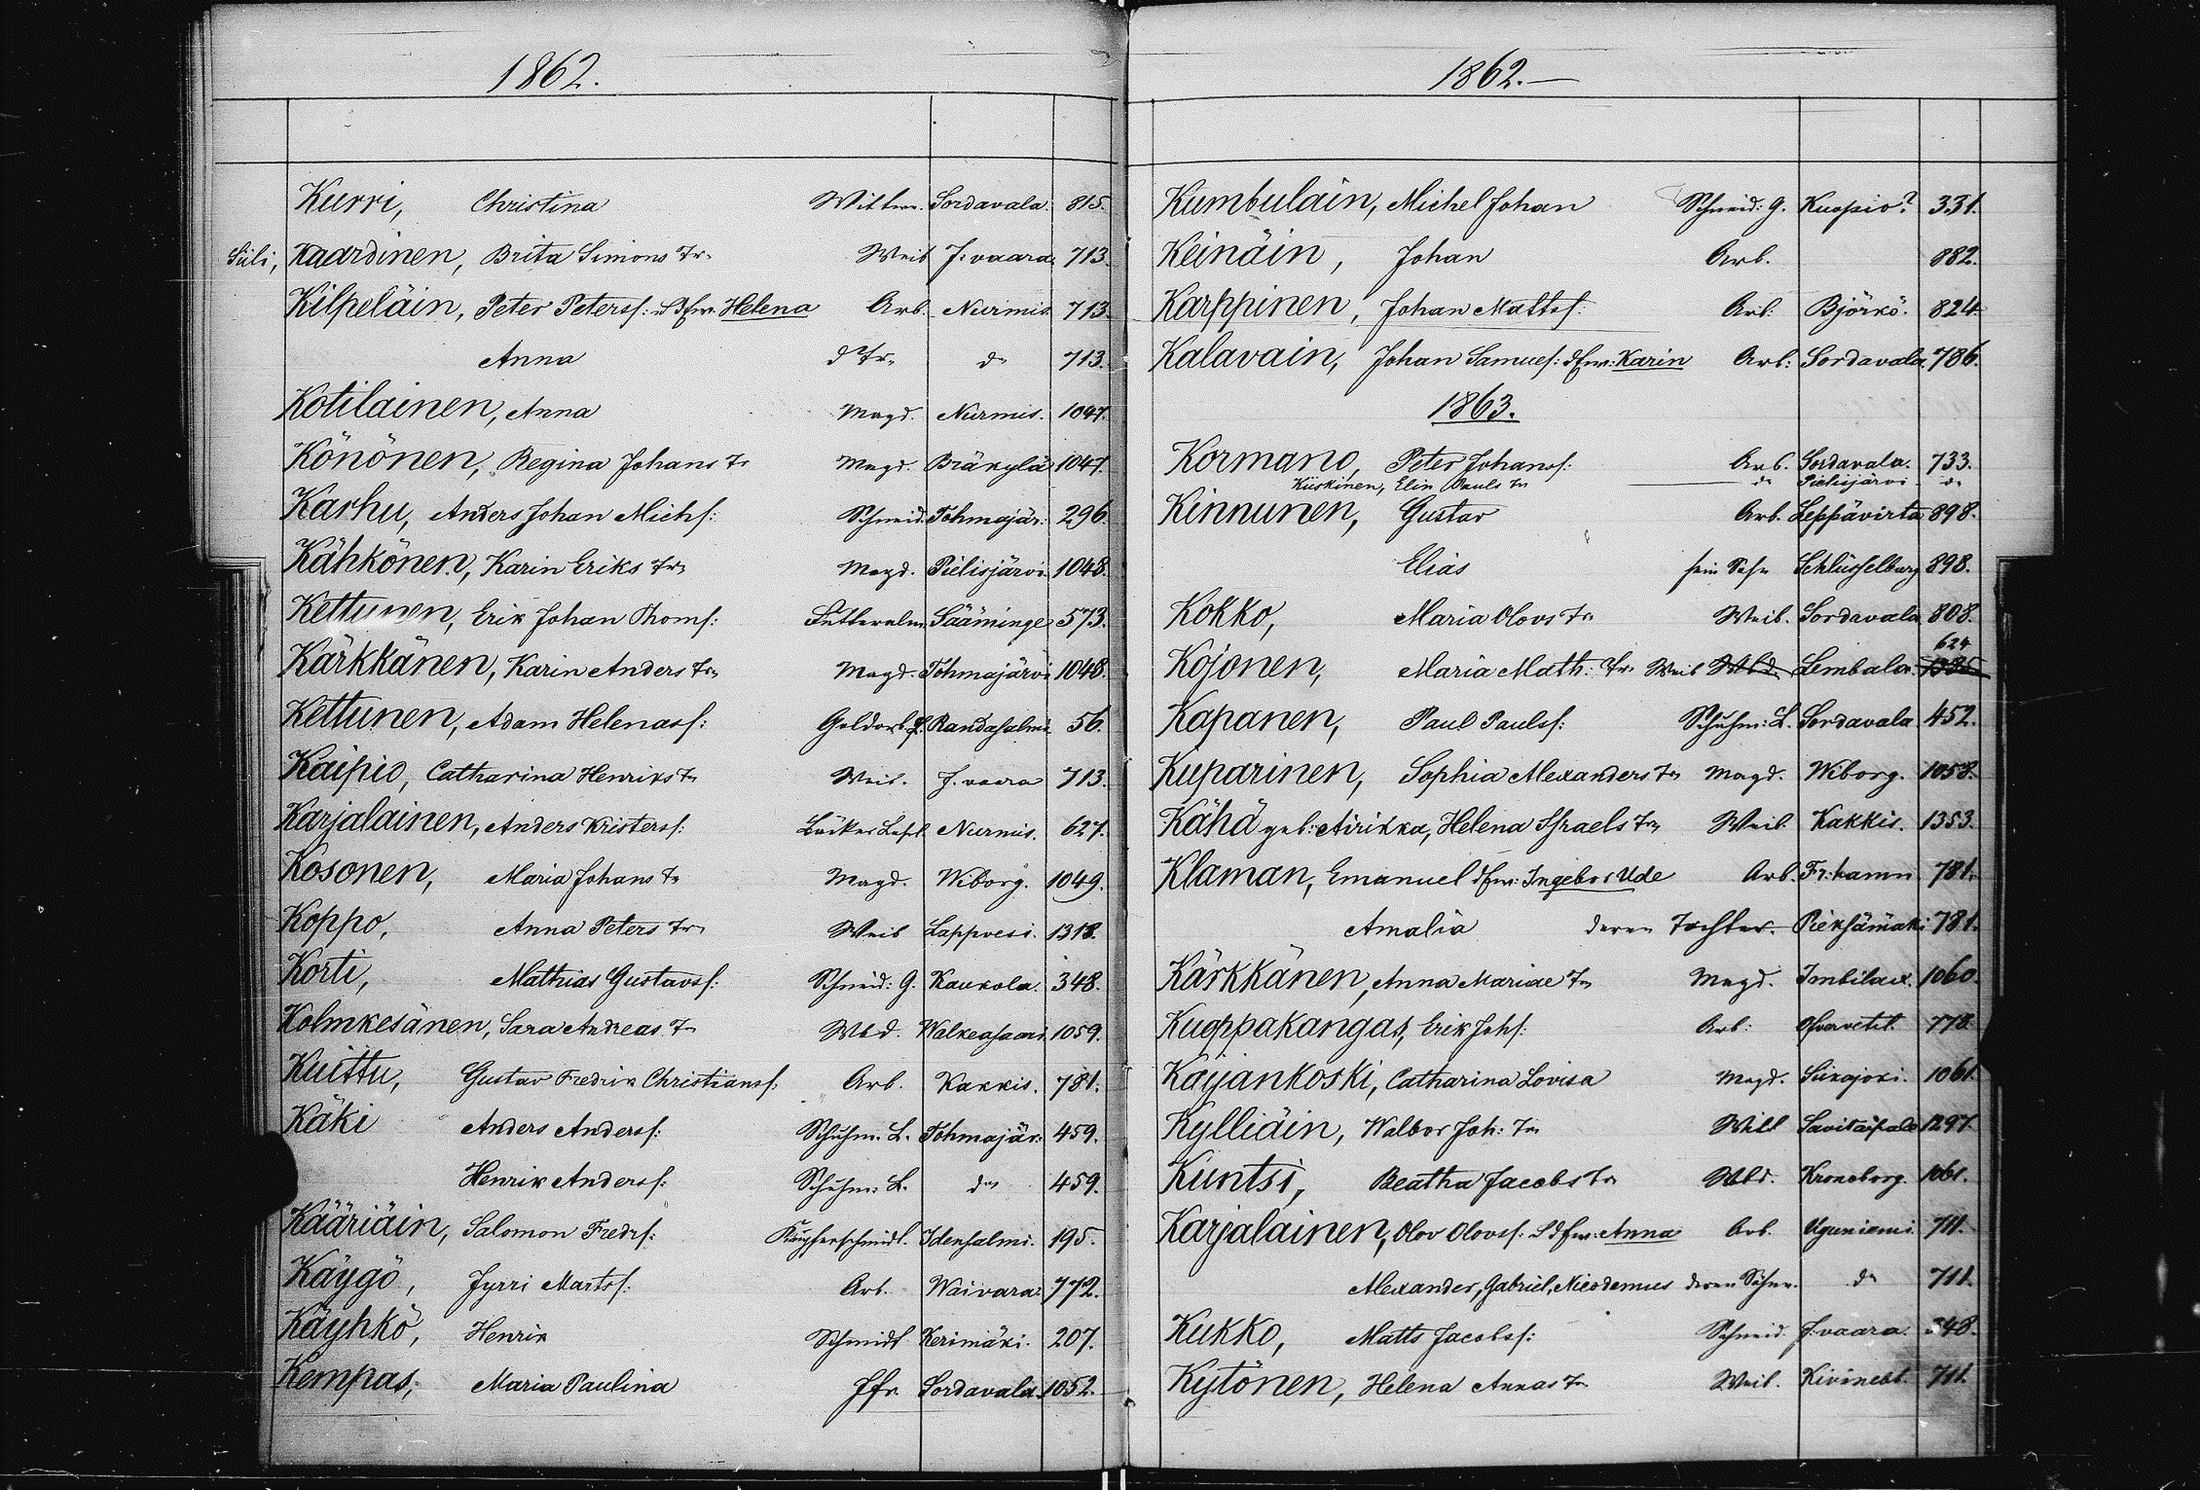 1862.
Kurri, Christina Wittwe. Sordavala. 815.
Süli, Kaardinen, Brita Simons Tr. Weib J:vaara 713.
Kilpeläin, Peter Petersf: Helena Arb. Nurmis. 713.
Anna d. Tr. do 713.
Kotilainen, Anna Magd. Nurmis. 1047.
Könönen, Regina Johans Tr Magd. Bräkylä 1047.
Karhu, Anders Johan Michf: Schneid. Tohmajär: 296.
Kähkönen, Karin Eriks Tr. Magd. Pielisjärvi 1048.
Kettunen, Erik Johan Thomf: Sääminge 573.
Kärkkänen, Karin Anders Tr. Magd. Tohmajärvi 1048.
Kettunen, Adam Helenasf: Randasalmi 56.
Kaipio, Catharina Henriks Tr Weib. J.vaara 713.
Karjalainen, Anders Kristersf: Nurmis. 627.
Kosonen, Maria Johans Tr Magd. Wiborg. 1049.
Koppo, Anna Peters Tr. Weib Lappvesi. 1318.
Korti, Mathias Gustavsf: Schneid: G. Kaukola. 348.
Kolmkesänen, Sara Andreas Tr Wbd. Walkeasaari. 1059.
Kuittu, Gustav Fredrik Christiansf: Arb. Kakkis. 781.
Käki Anders Andersf: Schuhm. L. Tohmajär: 459.
Henrik Andersf: Schuhm: L. do 459.
Kääriäin, Salomon Fredrf: Kupferschmidt. Idensalmi. 195.
Käygö, Jyrri Martsf: Arb. Waivara: 772.
Käyhkö, Henrik Schmidt Kerimäki. 207.
Kempas, Maria Paulina Jfr. Sordavala. 1052.
1862.
Kumbulain, Michel Johan Schneid: G. Kuopio? 331.
Keinäin, Johan Arb. 882.
Karppinen, Johan Mattsf: Arb: Björkö. 824.
Kalavain, Johan Samuelf: dfw: Karin Arb: Sordavala. 786.
1863.
Kormano, Peter Johansf: Arb. Sordavala. 733.
Kiiskinen, Elin Pauls Tr do Pielisjärvi do
Kinnunen, Gustav Arb. Leppävirta 898.
Elias sein Sohn Schlüsselburg 898.
Kokko, Maria Olovs Tr Weib. Sordavala 808.
624
Kojonen, Maria Math: Tr. Weib Wbd. Lembala. 1335
Kapanen, Paul Paulsf: Schuhm: L. Sordavala 452.
Kuparinen, Sophia Alexanders Tr Magd. Wiborg. 1058.
Kähä geb: Airikka, Helena Israels Tr. Weib. Kakkis. 1353.
Klaman, Emanuel dfw: Ingebor Ude Arb. Fr:hamn. 781.
Amalia deren Tochter. Pieksämäki 781.
Kärkkänen, Anna Mariae Tr Magd. Imbilax. 1060.
Kuoppakangas, Erik Johf: Arb: 778.
Kajjankoski, Catharina Lovisa Magd. Siikajoki. 1061.
Kylliäin, Walbor Joh: Tr Savitaipale 1297.
Kuntsi, Beatha Jacobs Tr Wbd. Kroneborg. 1061.
Karjalainen, Olov Olovsf: dfw: Anna Arb. Uguniemi. 711.
Alexander, Gabriel, Nicodemus deren Söhne. do 711.
Kukko, Matts Jacobsf: Schneid. J:vaara. 348.
Kytönen, Helena Annas Tr Weib. Kivinebb. 711.